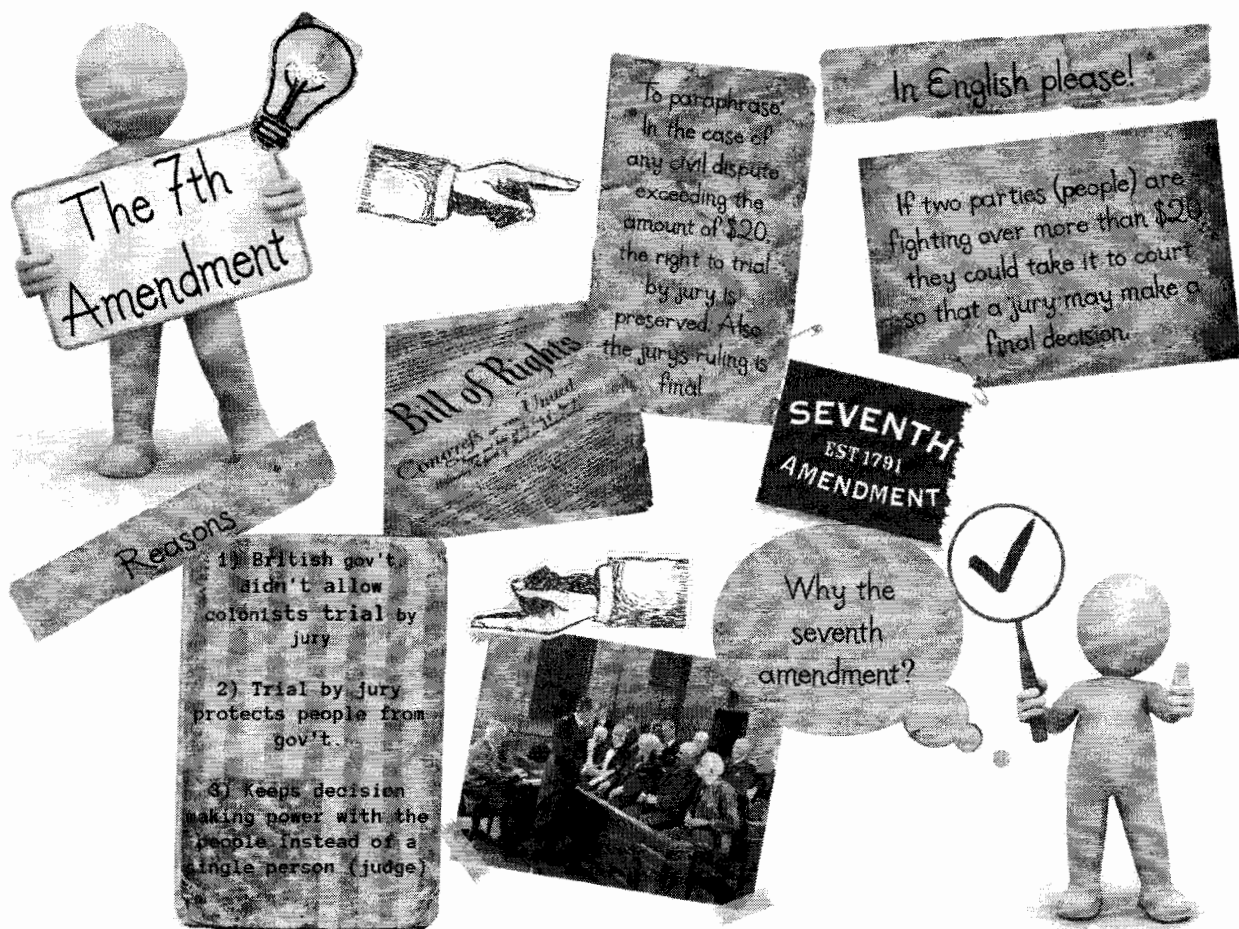 The 7th
Amendment
To paraphrase:
"In the case of
any civil dispute
exceeding the
amount of $20,
the right to trial
by jury is
preserved. Also
the jury's ruling is
final
In English please!
If two parties (people) are
fighting over more than $20
they could take it to court
so that a jury may make a
final decision.
Bill of Rights
Congress
United
SEVENTH
EST 1791
AMENDMENT
Reasons
1) British gov't.
didn't allow
colonists trial by
jury
2) Trial by jury
protects people from
gov't.
3) Keeps decision
making power with the
people instead of a
single person (judge)
Why the
seventh
amendment?